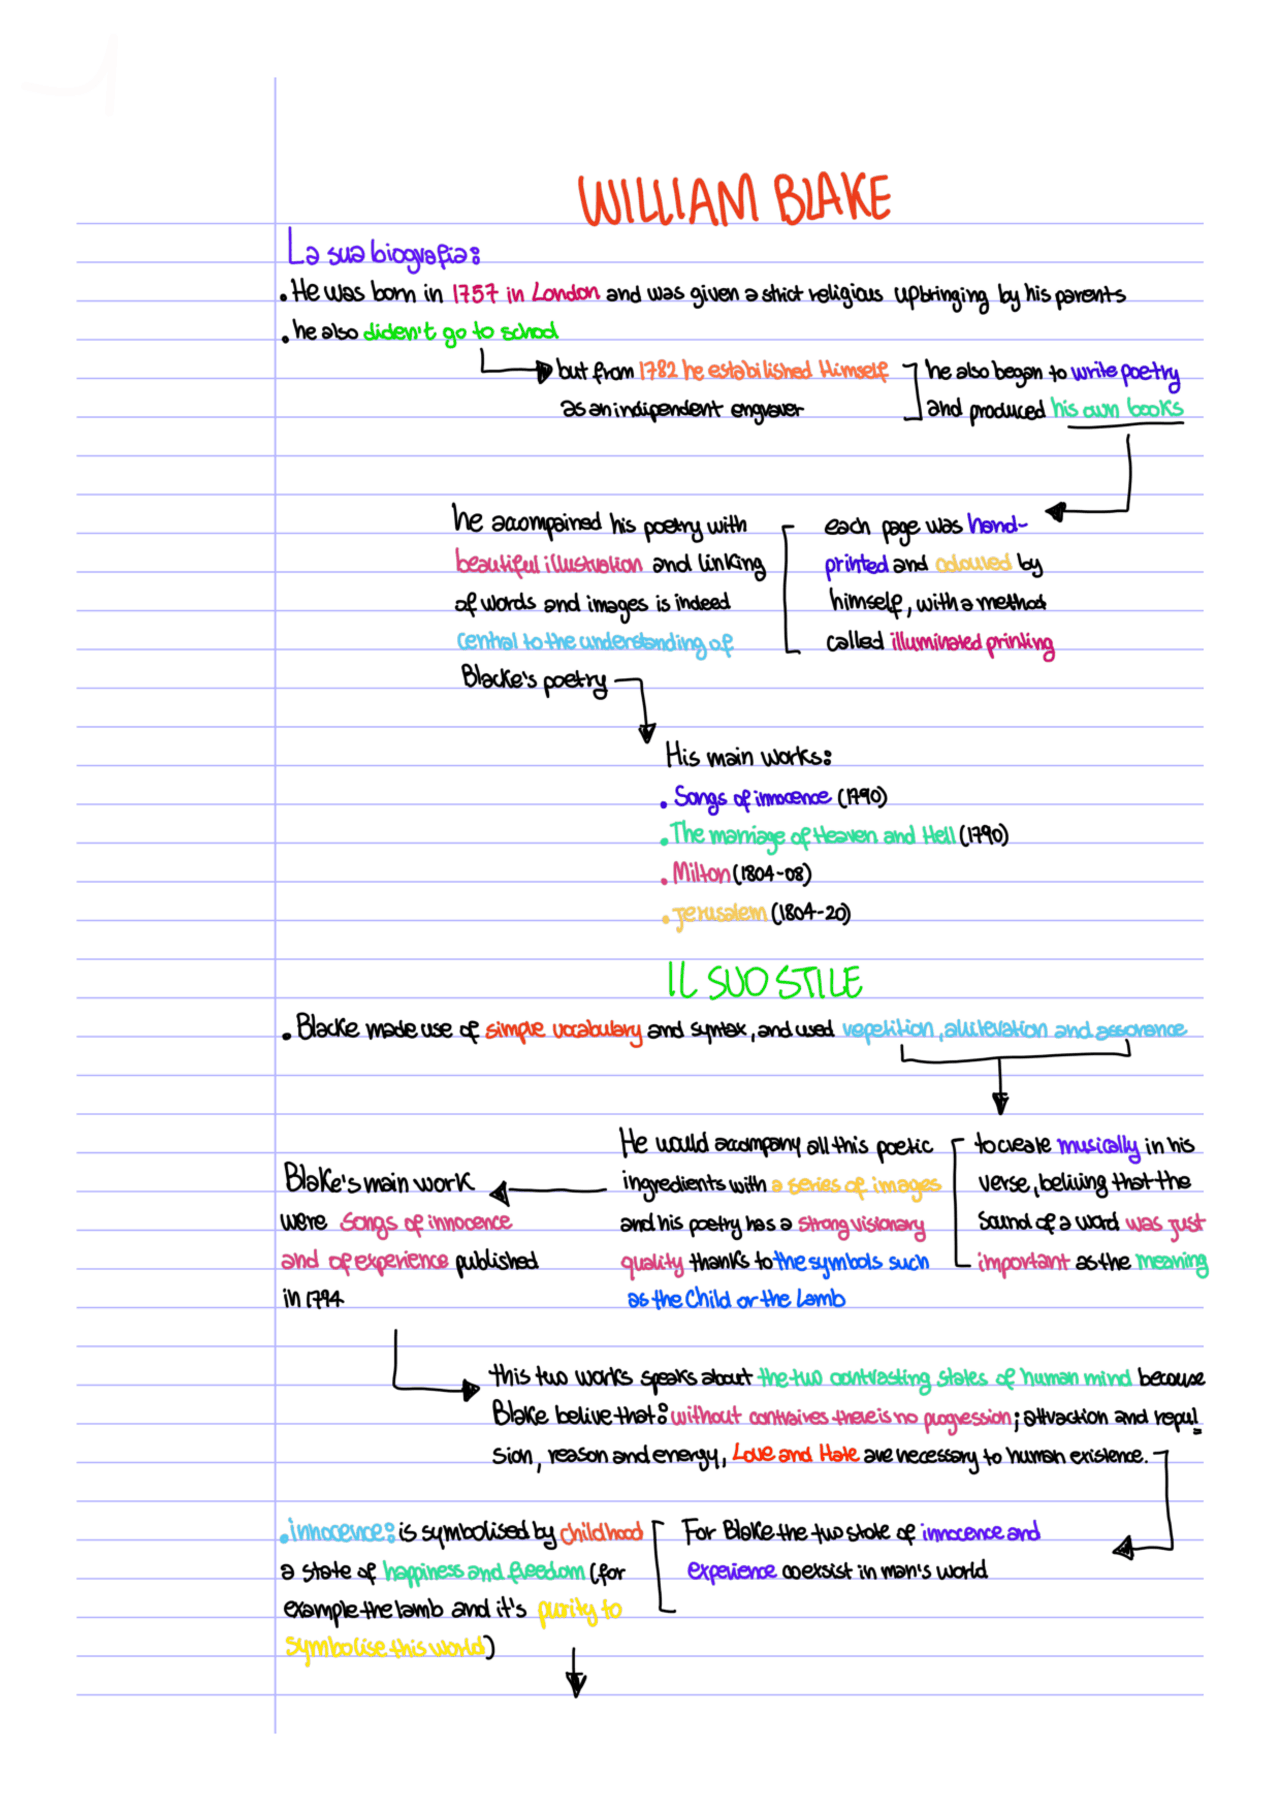 WILLIAM BLAKE
La sua biografia:
• He was born in 1757 in London and was given a strict religious upbringing by his parents
• he also diden't go to school
but from 1782 he estabilished Himself
as an indipendent engraver
he also began to write poetry
and produced his own books
each page was hand-
printed and coloured by
himself, with a method
called illuminated printing
he accompained his poetry with
beautiful illustration and linking
of words and images is indeed
central to the understanding of
Blacke's poetry
His main works:
• Songs of innocence (1790)
• The marriage of Heaven and Hell (1790)
• Milton (1804-08)
• Jerusalem (1804-20)
IL SUO STILE
• Blacke made use of simple vocabulary and syntax, and used repetition, alliteration and assonance
to create musically in his
verse, beliving that the
sound of a word was just
important as the meaning
He would accompany all this poetic
ingredients with a series of images
and his poetry has a strong visionary
quality thanks to the symbols such
as the Child or the Lamb
Blake's main work
were songs of innocence
and of experience published
in 1794
this two works speaks about the two contrasting states of human mind because
Blake belive that: without contraires there is no progression; attraction and repul
sion, reason and energy, Love and Hate are necessary to human existence.
For Blake the two state of innocence and
experience coexsist in man's world
• innocence: is symbolised by childhood
a state of happiness and freedom (for
example the lamb and it's purity to
symbolise this world)